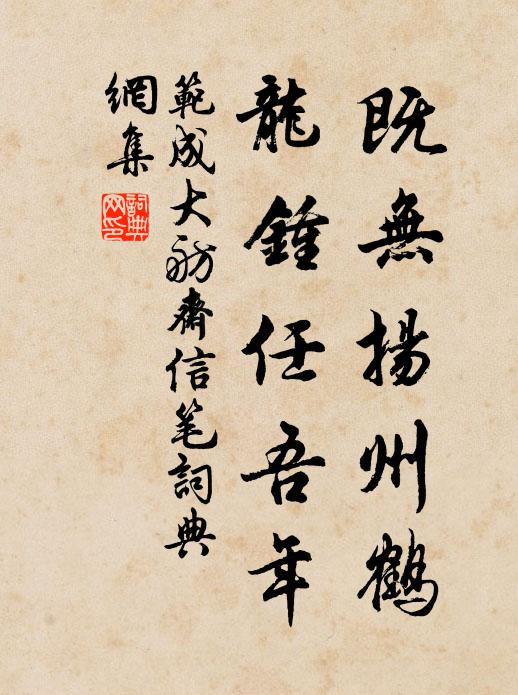 既無揚州鶴
龍鍾任吾年
範成大舫齋信笔詞典
網集
詞典網印